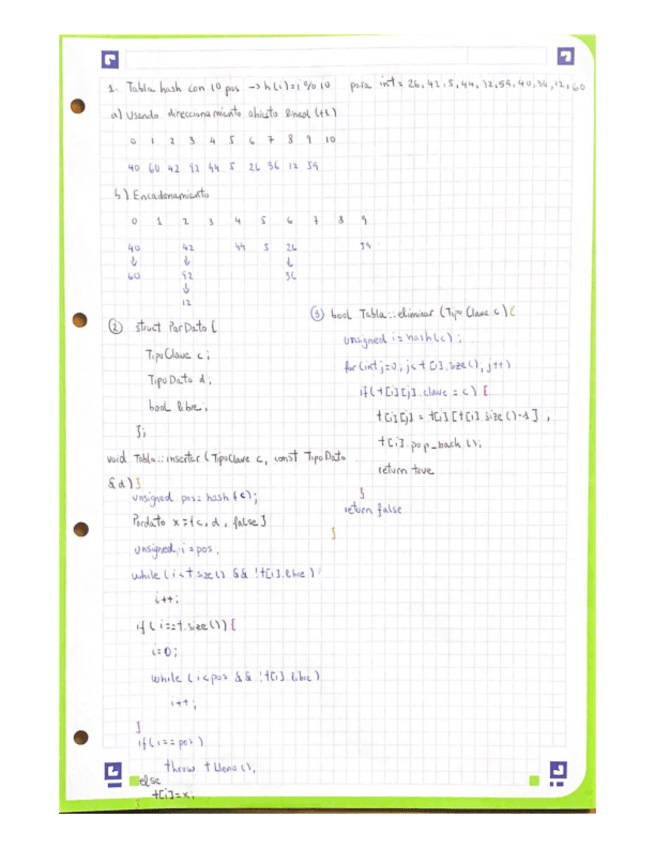 1. Tabla hash con 10 pos → h(i)=i%10 para int = 26, 42, 5, 44, 92, 59, 40, 36, 12, 60
a) Usando direccionamiento abierto lineal (+1)
0 1 2 3 4 5 6 7 8 9 10
40 60 42 92 44 5 26 36 12 59
b) Encadenamiento
0 1 2 3 4 5 6 7 8 9
40 42 44 5 26 59
↓ ↓ ↓
60 92 36
↓
12
② struct ParDato {
TipoClave c;
TipoDato d;
bool libre;
};
void Tabla::insertar (TipoClave c, const TipoDato
&d) {
unsigned pos = hash(c);
Pardato x = {c, d, false}
unsigned i = pos;
while (i < t.size() && !t[i].libre)
i++;
if (i == t.size()) {
i=0;
while (i<pos && !t[i].libre)
i++;
}
if (i == pos)
throw tLlena();
else
t[i]=x;
③ bool Tabla::eliminar (Tipo Clave c) {
unsigned i = hash(c);
for (int j=0, j< t[i].size(), j++)
if (t[i][j].clave = c) {
t[i][j] = t[i][t[i].size()-1];
t[i].pop_back();
return true
}
return false
}